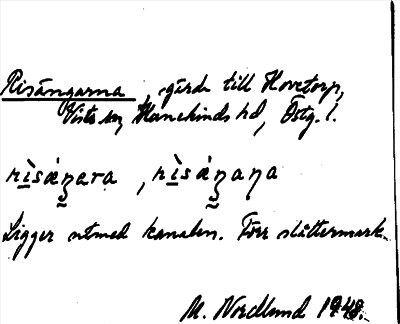 Risängarna, gärde till Hovetorp,
Vists sn, Hanekinds hd, Östg. l.
rìsáŋara, rìsáŋaɳa
Ligger utmed kanalen. Förr slåttermark
M. Nordlund 1948.